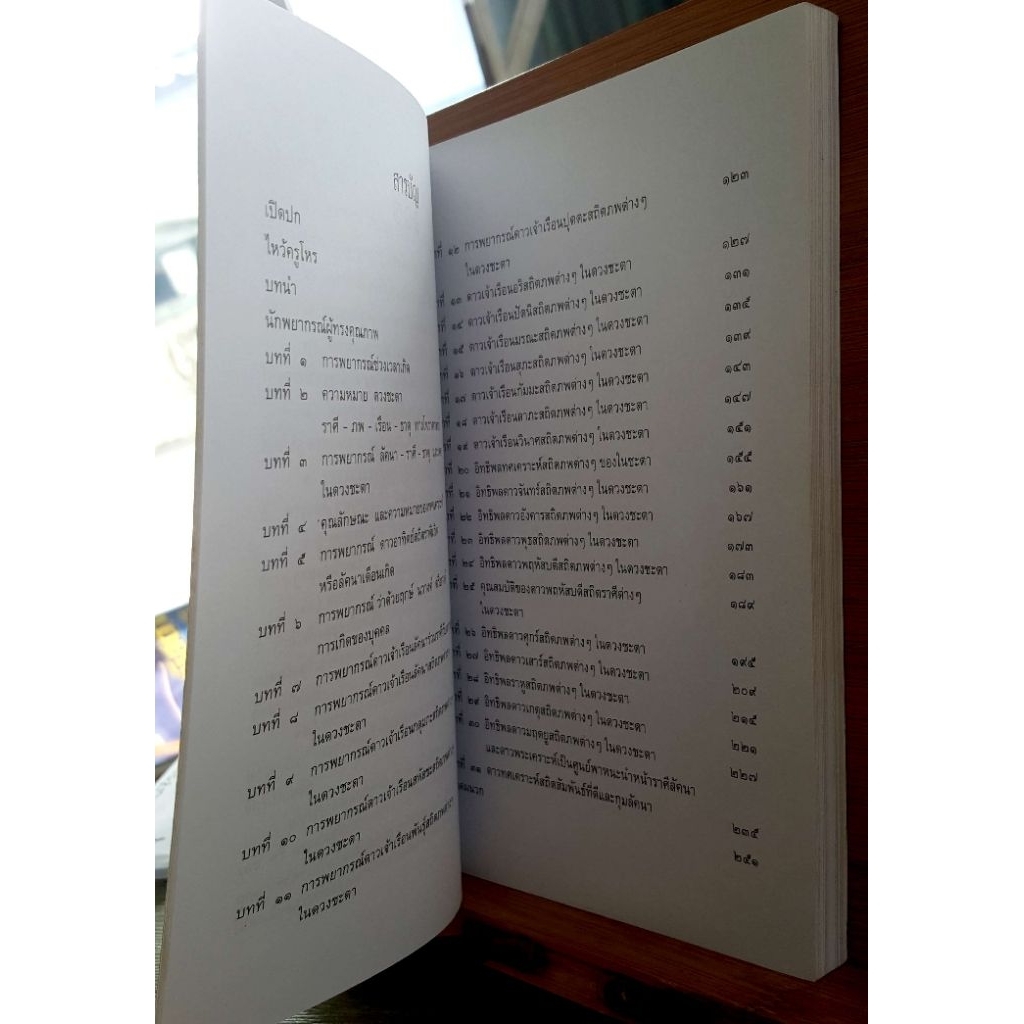 สารบัญ
เปิดปก
ไหว้ครูโหร
บทนำ
นักพยากรณ์ผู้ทรงคุณภาพ
บทที่ ๑ การพยากรณ์ช่วงเวลาเกิด
บทที่ ๒ ความหมาย ดวงชะตา
ราศี - ภพ - เรือน - ธาตุ
บทที่ ๓ การพยากรณ์ ลัคนา - ราศี - ธาตุ
ในดวงชะตา
บทที่ ๔ คุณลักษณะ และความหมายของ
บทที่ ๕ การพยากรณ์ ดาวอาทิตย์
หรือลัคนาเดือนเกิด
บทที่ ๖ การพยากรณ์ ว่าด้วยฤกษ์
การเกิดของบุคคล
บทที่ ๗ การพยากรณ์ดาวเจ้าเรือนลัคนา
บทที่ ๘ การพยากรณ์ดาวเจ้าเรือนลัคนา
ในดวงชะตา
บทที่ ๙ การพยากรณ์ดาวเจ้าเรือนกฎุมภะ
ในดวงชะตา
บทที่ ๑๐ การพยากรณ์ดาวเจ้าเรือนสหัสชะ
ในดวงชะตา
บทที่ ๑๑ การพยากรณ์ดาวเจ้าเรือนพันธุ
ในดวงชะตา
๑๒ การพยากรณ์ดาวเจ้าเรือนปุตตะสถิตภพต่างๆ ๑๒๓
ในดวงชะตา
๑๓ ดาวเจ้าเรือนอริสถิตภพต่างๆ ในดวงชะตา ๑๒๗
๑๔ ดาวเจ้าเรือนปัตนิสถิตภพต่างๆ ในดวงชะตา ๑๓๑
๑๕ ดาวเจ้าเรือนมรณะสถิตภพต่างๆ ในดวงชะตา ๑๓๕
๑๖ ดาวเจ้าเรือนสุภะสถิตภพต่างๆ ในดวงชะตา ๑๓๙
๑๗ ดาวเจ้าเรือนกัมมะสถิตภพต่างๆ ในดวงชะตา ๑๔๓
๑๘ ดาวเจ้าเรือนลาภะสถิตภพต่างๆ ในดวงชะตา ๑๔๗
๑๙ ดาวเจ้าเรือนวินาศสถิตภพต่างๆ ในดวงชะตา ๑๕๑
๒๐ อิทธิพลทศเคราะห์สถิตภพต่างๆ ของในชะตา ๑๕๕
๒๑ อิทธิพลดาวจันทร์สถิตภพต่างๆ ในดวงชะตา ๑๖๑
๒๒ อิทธิพลดาวอังคารสถิตภพต่างๆ ในดวงชะตา ๑๖๗
๒๓ อิทธิพลดาวพุธสถิตภพต่างๆ ในดวงชะตา ๑๗๓
๒๔ อิทธิพลดาวพฤหัสบดีสถิตภพต่างๆ ในดวงชะตา ๑๘๓
๒๕ คุณสมบัติของดาวพฤหัสบดีสถิตราศีต่างๆ ๑๘๙
ในดวงชะตา
๒๖ อิทธิพลดาวศุกร์สถิตภพต่างๆ ในดวงชะตา ๑๙๕
๒๗ อิทธิพลดาวเสาร์สถิตภพต่างๆ ในดวงชะตา ๒๐๙
๒๘ อิทธิพลราหูสถิตภพต่างๆ ในดวงชะตา ๒๑๕
๒๙ อิทธิพลดาวเกตุสถิตภพต่างๆ ในดวงชะตา ๒๒๑
๑๐ อิทธิพลดาวมฤตยูสถิตภพต่างๆ ในดวงชะตา ๒๒๗
และดาวพระเคราะห์เป็นศูนย์พาหนะนำหน้าราศีลัคนา
๑๑ ดาวทศเคราะห์สถิตสัมพันธ์ที่ดีและกุมลัคนา ๒๓๕
๒๕๑